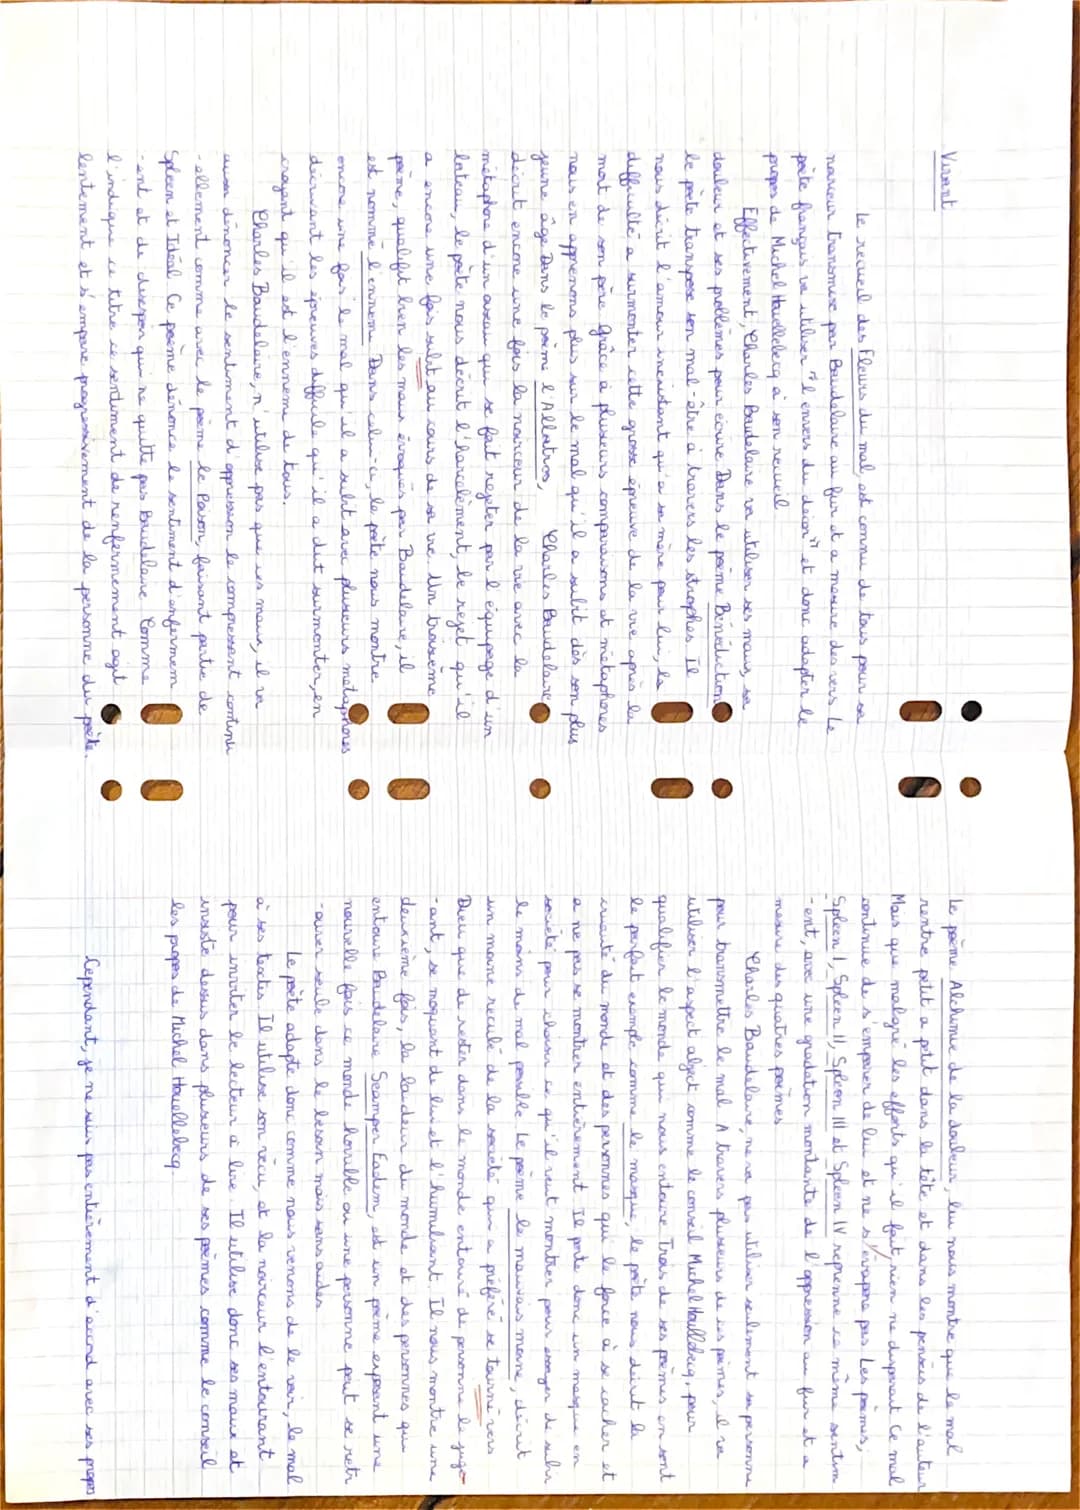 Vivant
Le recueil des Fleurs du mal, est connu de tous pour sa
noirceur transmise par Baudelaire au fur et a mesure des vers Le
poète français va utiliser "l'envers du décor" et donc adapter le
propos de Michel Houellebecq à son recueil
Effectivement, Charles Baudelaire va utiliser ses maux, sa
douleur et ses problèmes pour écrire Dans le poème Bénédiction
le poète transpose son mal-être à travers les strophes. Il
nous décrit l'amour inexistant qu'a sa mère pour lui, la
difficulté a surmonter cette grosse épreuve de la vie après la
mort de son père Grâce a plusieurs comparaisons et métaphores
nous en apprenons plus sur le mal qu'il a subit dès son plus
jeune âge Dans le poème l'Albatros, Charles Baudelaire
décrit encore une fois la noirceur de la vie avec la
métaphore d'un oiseau qui se fait rejeter par l'équipage d'un
bateau, le poète nous décrit l'harcèlement, le rejet qu'il
a encore une fois subit au cours de sa vie. Un troisième
poème, qualifit bien les maux évoqués par Baudelaire, il
est nommé l'ennemi Dans celui-ci, le poète nous montre
encore une fois le mal qu'il a subit avec plusieurs métaphores
décrivant les épreuves difficile qu'il a dut surmonter, en
croyant qu'il est l'ennemi de tous.
Charles Baudelaire, n'utilise pas que ses maux, il va
aussi dénoncer le sentiment d'oppression le compressant continu
-ellement comme avec le poème le Poison, faisant partie de
Spleen et Idéal Ce poème dénonce le sentiment d'enfermem
-ent et de disespoir qui ne quitte pas Baudelaire Comme
l'indique ce titre ce sentiment de renfermement agit
lentement et s'empare progressivement de la personne du poète.
Le poème Alchimie de la douleur, lui nous montre que le mal
rentre petit a petit dans la tête et dans les pensées de l'auteur
Mais que malgré les efforts qu'il fait rien ne disparait Ce mal
continue de s'emparer de lui et ne s'évapore pas Les poèmes,
Spleen I, Spleen II, Spleen III et Spleen IV reprenne ce même sentim
-ent, avec une gradation montante de l'oppression au fur et a
mesure des quatres poèmes
Charles Baudelaire, ne va pas utiliser seulement sa personne
pour transmettre le mal A travers plusieurs de ces poèmes, il va
utiliser l'aspect abject comme le conseil Michel Houellebecq, pour
qualifier le monde qui nous entoure Trois de ses poèmes en sont
le parfait exemple comme le masque, le poète nous décrit la
cruauté du monde et des personnes qui le force à se cacher et
a ne pas se montrer entièrement Il porte donc un masque en
société pour choisir ce qu'il veut montrer pour essayer de subir
le moins de mal possible Le poème le mauvais moine, décrit
un moine reculé de la société qui a préféré se tourné vers
Dieu que de rester dans le monde entouré de personne le juge
-ant, se moquant de lui et l'humiliant. Il nous montre une
deuxième fois, la laideur du monde et des personnes qui
entoure Baudelaire Semper Eadem, est un poème exposant une
nouvelle fois ce monde horrible ou une personne peut se retr
-ouver seule dans le besoin mais sans aides
Le poète adapte donc comme nous venons de le voir, le mal
à ses textes Il utilise son vécu, et la noirceur l'entourant
pour inviter le lecteur a lire Il utilise donc ses maux et
insiste dessus dans plusieurs de ses poèmes comme le conseil
les propos de Michel Houellebecq
Cependant, je ne suis pas entièrement d'accord avec ses propos